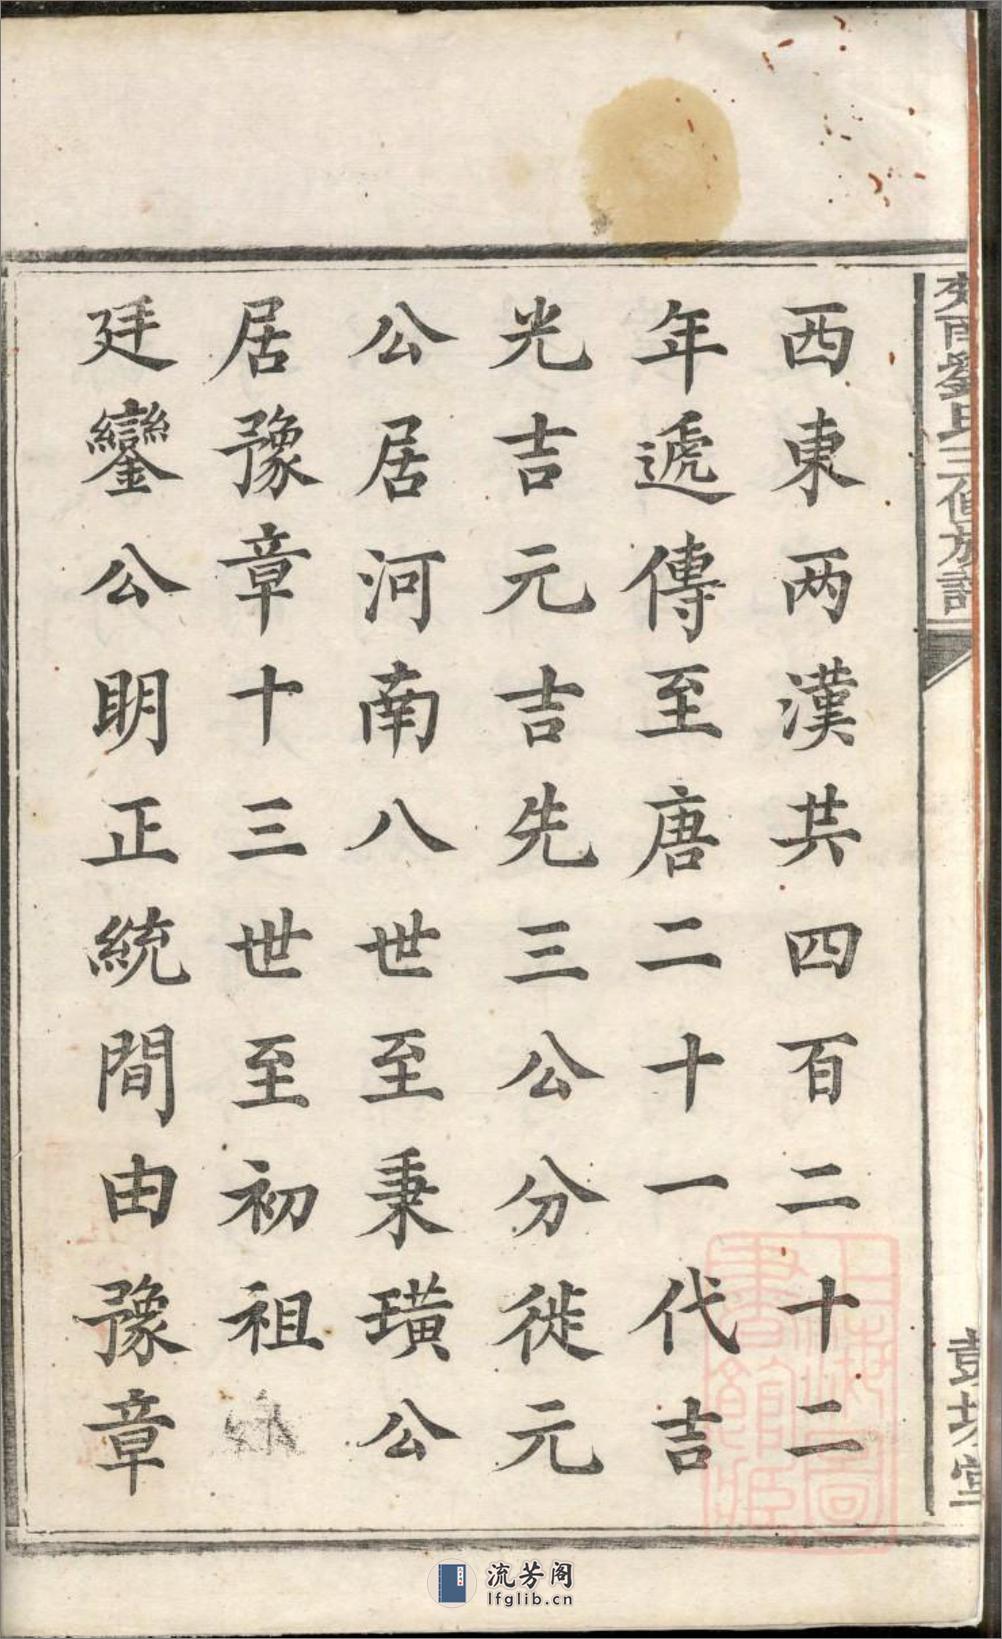 西東两漢共四百二十二
年遞傳至唐二十一代吉
光吉元吉先三公分徙元
公居河南八世至秉璜公
居豫章十三世至初祖
廷鑾公明正統間由豫章
劉氏三修族譜
彭城堂
上海圖書館藏
流芳阁
lfglib.cn